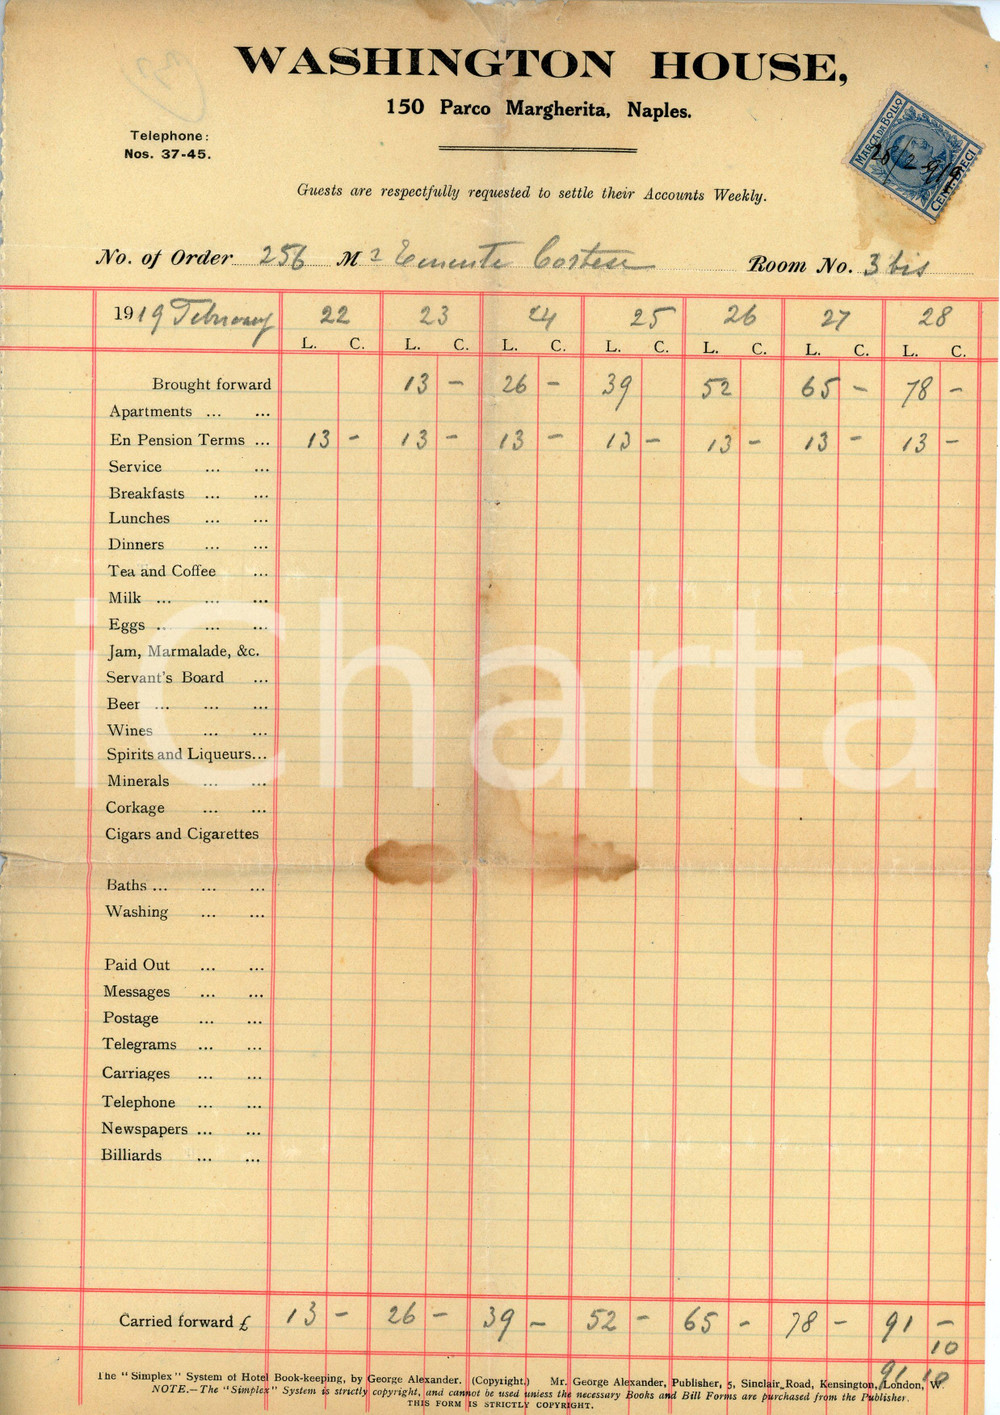 WASHINGTON HOUSE,
150 Parco Margherita, Naples.
Telephone:
Nos. 37-45.
MARCA DA BOLLO
CENT. DIECI
28/2-919
Guests are respectfully requested to settle their Accounts Weekly.
No. of Order 256 Mr Tenente Cortese Room No. 3 bis
1919 February 22 23 24 25 26 27 28
L. C. L. C. L. C. L. C. L. C. L. C. L. C.
Brought forward 13 - 26 - 39 52 65 - 78 -
Apartments ... ...
En Pension Terms ... 13 - 13 - 13 - 13 - 13 - 13 - 13 -
Service ... ...
Breakfasts ... ...
Lunches ... ...
Dinners ... ...
Tea and Coffee ...
Milk ... ... ...
Eggs ... ... ...
Jam, Marmalade, &c.
Servant's Board ...
Beer ... ... ...
Wines ... ...
Spirits and Liqueurs...
Minerals ... ...
Corkage ... ...
Cigars and Cigarettes
Baths ... ... ...
Washing ... ...
Paid Out ... ...
Messages ... ...
Postage ... ...
Telegrams ... ...
Carriages ... ...
Telephone ... ...
Newspapers ... ...
Billiards ... ...
Carried forward £ 13 - 26 - 39 - 52 - 65 - 78 - 91 -
10
91 10
The "Simplex" System of Hotel Book-keeping, by George Alexander. (Copyright.) Mr. George Alexander, Publisher, 5, Sinclair Road, Kensington, London, W.
NOTE.—The "Simplex" System is strictly copyright, and cannot be used unless the necessary Books and Bill Forms are purchased from the Publisher.
THIS FORM IS STRICTLY COPYRIGHT.
iCharta